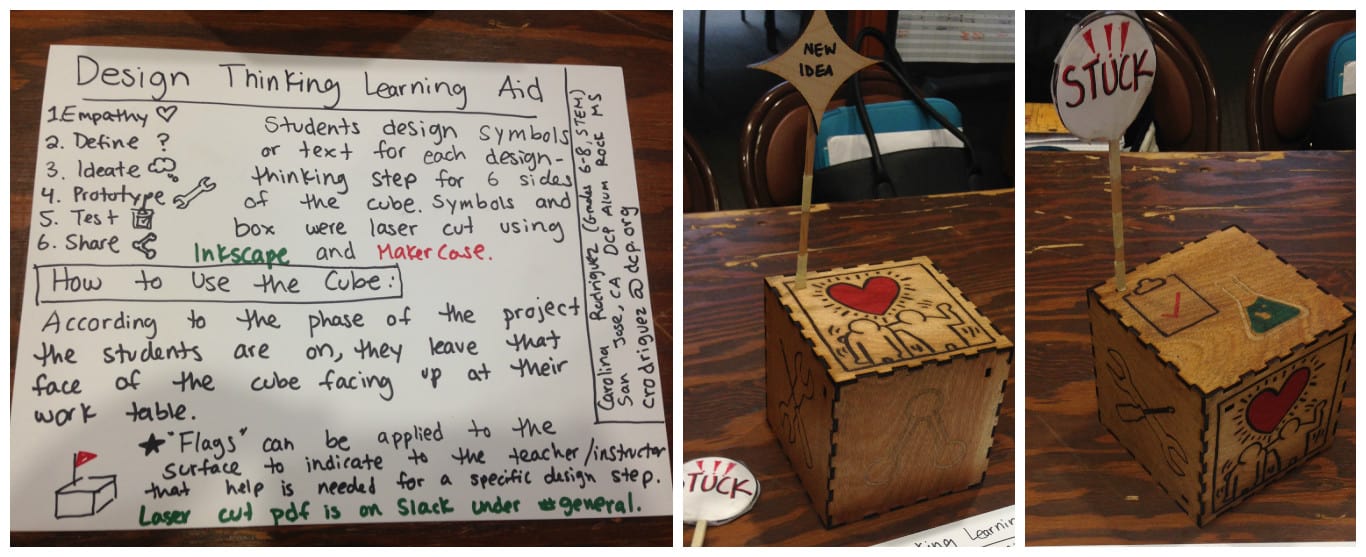 Design Thinking Learning Aid
1. Empathy
2. Define ?
3. Ideate
4. Prototype
5. Test
6. Share
Students design symbols
or text for each design-
thinking step for 6 sides
of the cube. Symbols and
box were laser cut using
Inkscape and MakerCase.
How to Use the Cube:
According to the phase of the project
the students are on, they leave that
face of the cube facing up at their
work table.
★"Flags" can be applied to the
surface to indicate to the teacher/instructor
that help is needed for a specific design step.
Laser cut pdf is on Slack under #general.
Carolina Rodriguez (Grades 6-8, STEM)
San Jose, CA DCP Alum Rock MS
crodriguez@dcp.org
NEW
IDEA
!!!
STUCK
king Learnin
!!!
STUCK